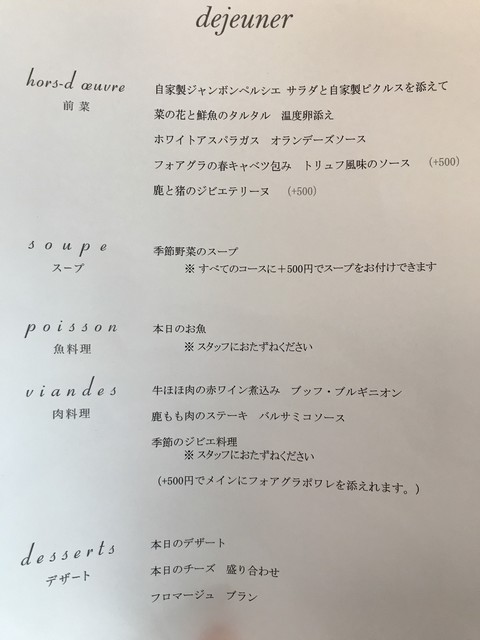 dejeuner
hors-d œuvre
前菜
自家製ジャンボンペルシエ サラダと自家製ピクルスを添えて
菜の花と鮮魚のタルタル 温度卵添え
ホワイトアスパラガス オランデーズソース
フォアグラの春キャベツ包み トリュフ風味のソース (+500)
鹿と猪のジビエテリーヌ (+500)
soupe
スープ
季節野菜のスープ
※ すべてのコースに+500円でスープをお付けできます
poisson
魚料理
本日のお魚
※ スタッフにおたずねください
viandes
肉料理
牛ほほ肉の赤ワイン煮込み ブッフ・ブルギニオン
鹿もも肉のステーキ バルサミコソース
季節のジビエ料理
※ スタッフにおたずねください
(+500円でメインにフォアグラポワレを添えれます。)
desserts
デザート
本日のデザート
本日のチーズ 盛り合わせ
フロマージュ ブラン